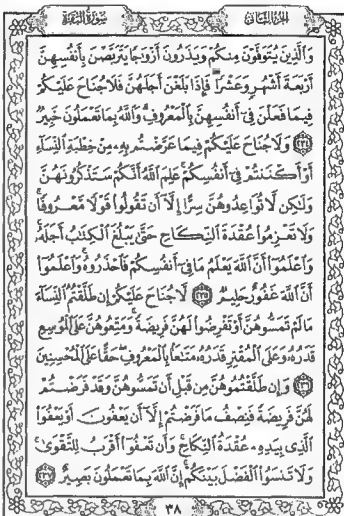 الجزء الثاني
سورة البقرة
وَالَّذِينَ يُتَوَفَّوْنَ مِنكُمْ وَيَذَرُونَ أَزْوَٰجًا يَتَرَبَّصْنَ بِأَنفُسِهِنَّ
أَرْبَعَةَ أَشْهُرٍ وَعَشْرًا ۖ فَإِذَا بَلَغْنَ أَجَلَهُنَّ فَلَا جُنَاحَ عَلَيْكُمْ
فِيمَا فَعَلْنَ فِىٓ أَنفُسِهِنَّ بِالْمَعْرُوفِ ۗ وَاللَّهُ بِمَا تَعْمَلُونَ خَبِيرٌ
﴿٢٣٤﴾ وَلَا جُنَاحَ عَلَيْكُمْ فِيمَا عَرَّضْتُم بِهِۦ مِنْ خِطْبَةِ النِّسَآءِ
أَوْ أَكْنَنتُمْ فِىٓ أَنفُسِكُمْ ۚ عَلِمَ اللَّهُ أَنَّكُمْ سَتَذْكُرُونَهُنَّ
وَلَٰكِن لَّا تُوَاعِدُوهُنَّ سِرًّا إِلَّآ أَن تَقُولُوا۟ قَوْلًا مَّعْرُوفًا ۚ
وَلَا تَعْزِمُوا۟ عُقْدَةَ النِّكَاحِ حَتَّىٰ يَبْلُغَ الْكِتَٰبُ أَجَلَهُۥ ۚ
وَاعْلَمُوٓا۟ أَنَّ اللَّهَ يَعْلَمُ مَا فِىٓ أَنفُسِكُمْ فَاحْذَرُوهُ ۚ وَاعْلَمُوٓا۟
أَنَّ اللَّهَ غَفُورٌ حَلِيمٌ ﴿٢٣٥﴾ لَّا جُنَاحَ عَلَيْكُمْ إِن طَلَّقْتُمُ النِّسَآءَ
مَا لَمْ تَمَسُّوهُنَّ أَوْ تَفْرِضُوا۟ لَهُنَّ فَرِيضَةً ۚ وَمَتِّعُوهُنَّ عَلَى الْمُوسِعِ
قَدَرُهُۥ وَعَلَى الْمُقْتِرِ قَدَرُهُۥ مَتَٰعًۢا بِالْمَعْرُوفِ ۖ حَقًّا عَلَى الْمُحْسِنِينَ
﴿٢٣٦﴾ وَإِن طَلَّقْتُمُوهُنَّ مِن قَبْلِ أَن تَمَسُّوهُنَّ وَقَدْ فَرَضْتُمْ
لَهُنَّ فَرِيضَةً فَنِصْفُ مَا فَرَضْتُمْ إِلَّآ أَن يَعْفُونَ أَوْ يَعْفُوَا۟
الَّذِى بِيَدِهِۦ عُقْدَةُ النِّكَاحِ ۚ وَأَن تَعْفُوٓا۟ أَقْرَبُ لِلتَّقْوَىٰ ۚ
وَلَا تَنسَوُا۟ الْفَضْلَ بَيْنَكُمْ ۚ إِنَّ اللَّهَ بِمَا تَعْمَلُونَ بَصِيرٌ ﴿٢٣٧﴾
٣٨